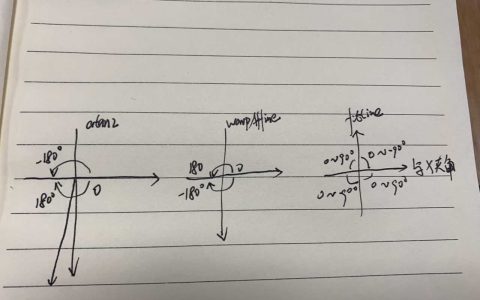 arctan2
-180°
180°
0
warpAffine
180
0
-180°
fitLine
0~90°
0~-90°
与X夹角
0~90°
0~90°